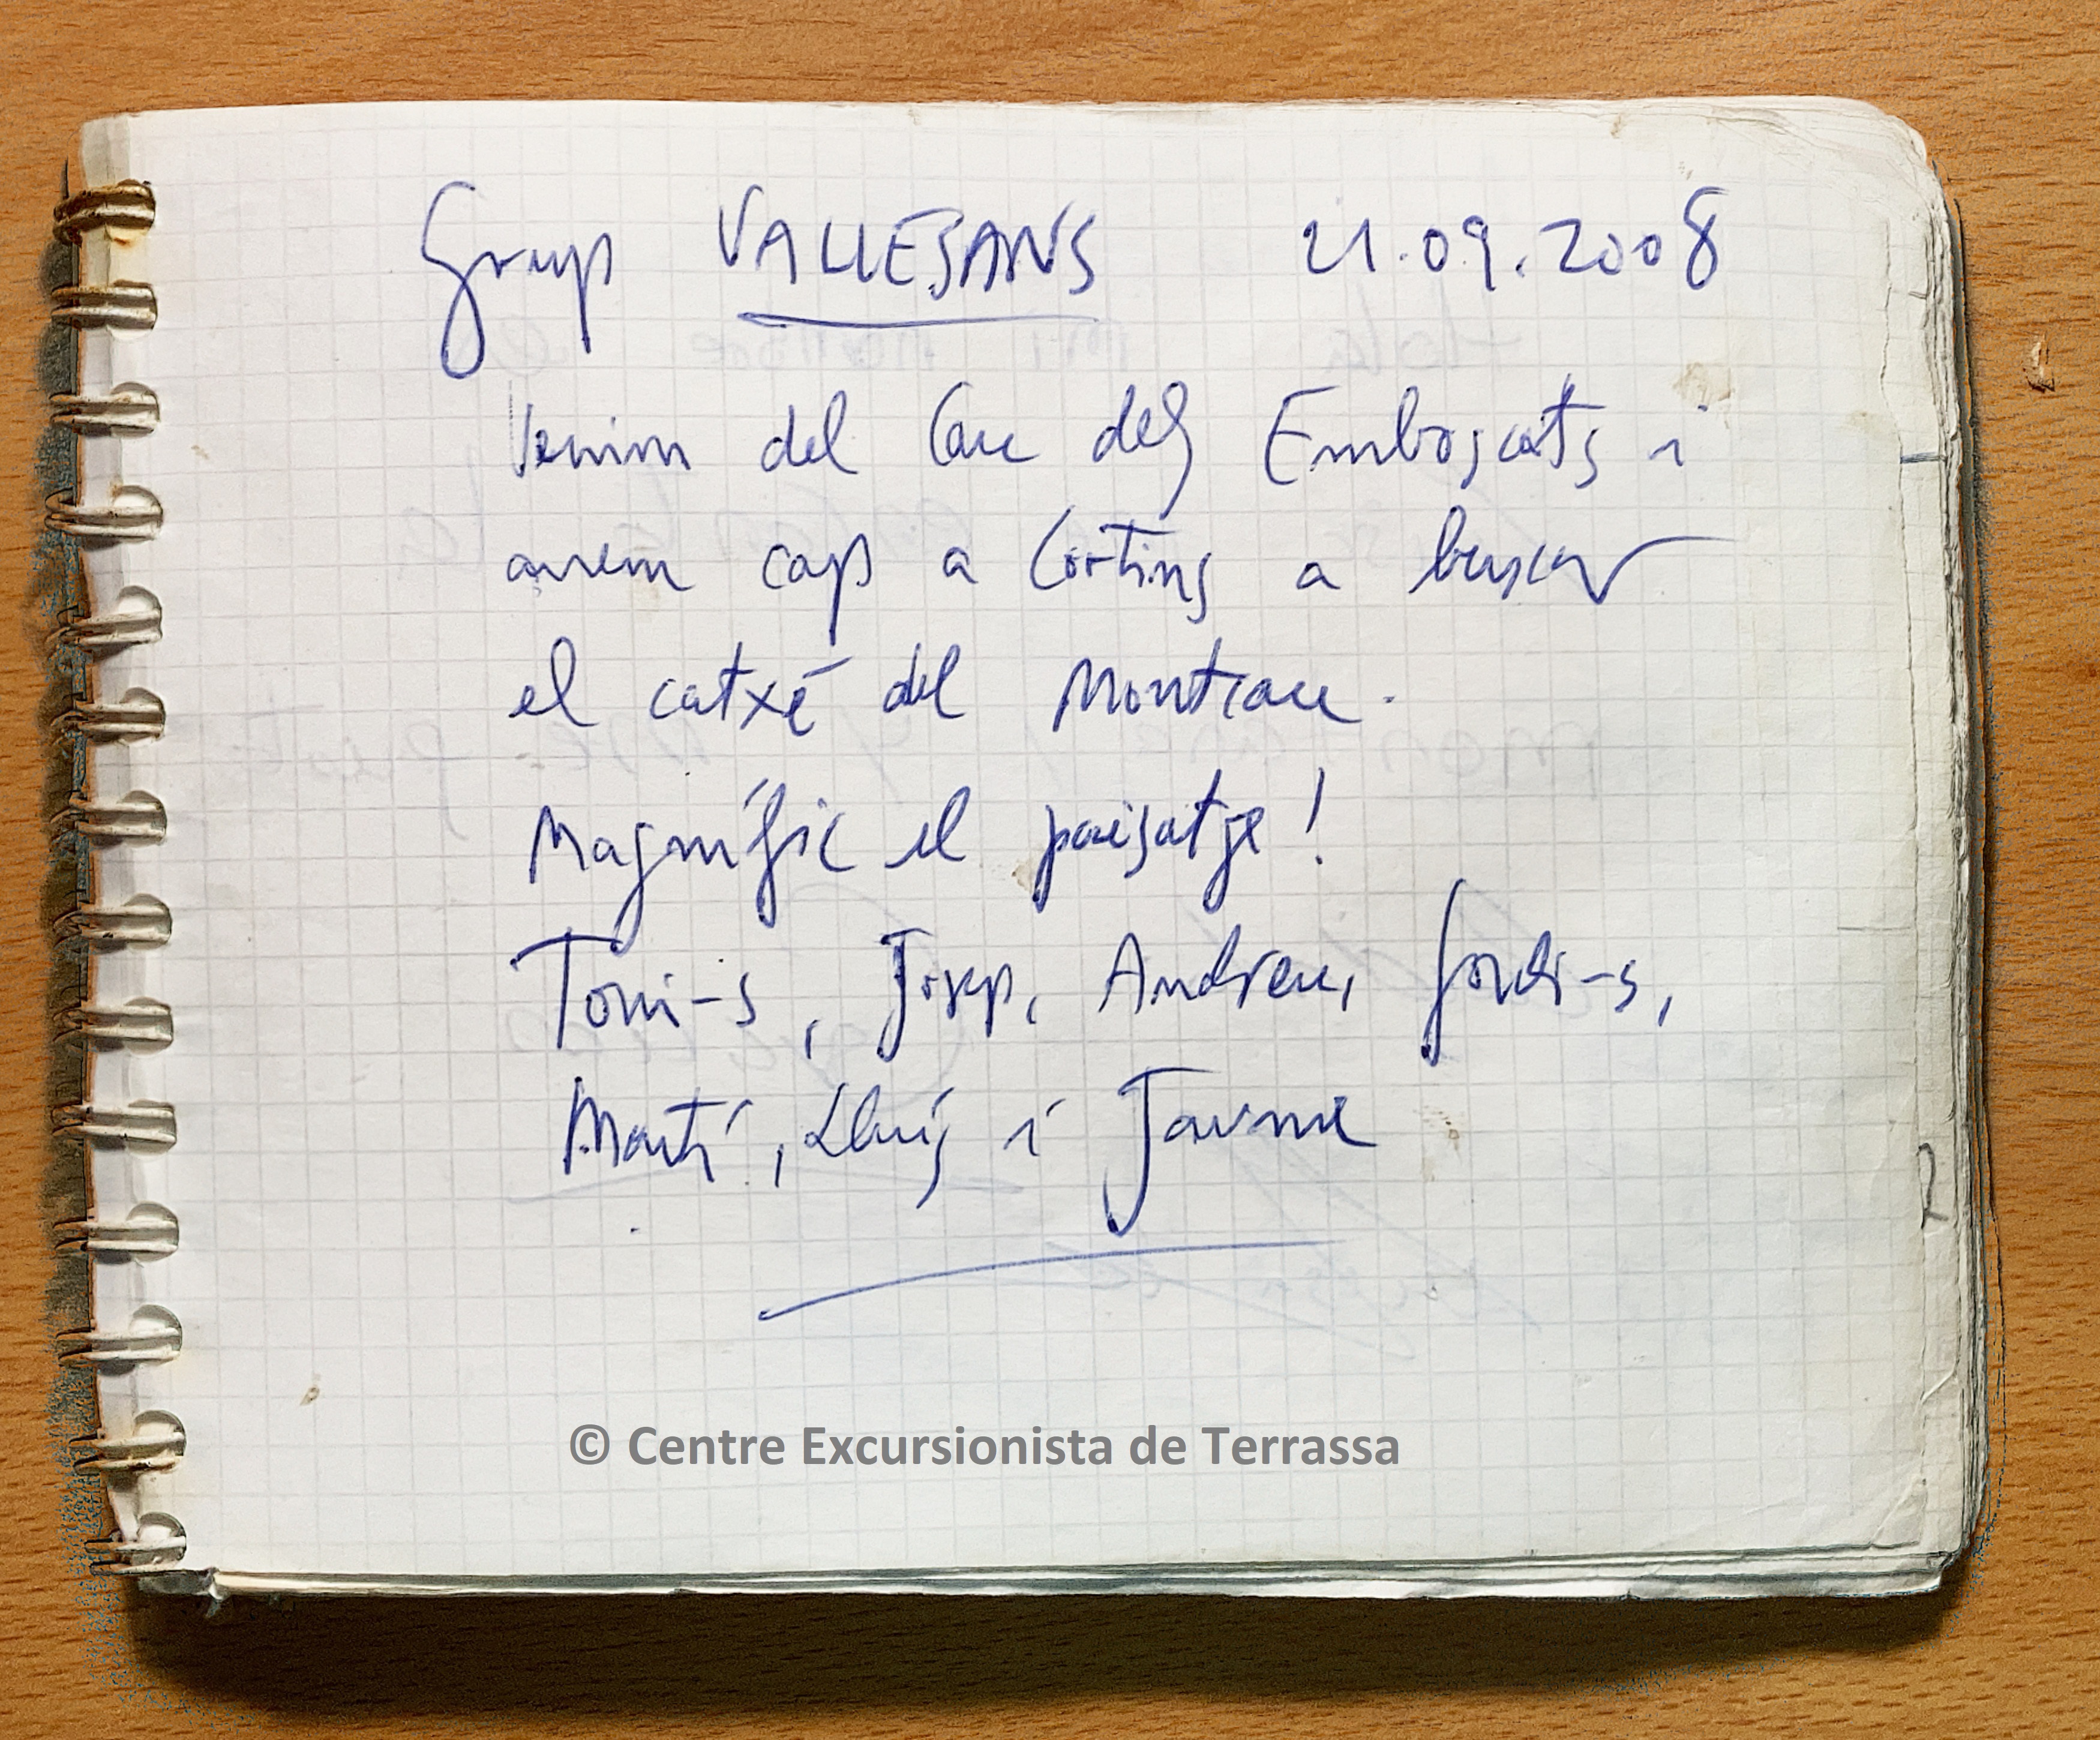 Grup VALLESANS 21.09.2008
Venim del Cau dels Emboscats i
anem cap a Cortins a buscar
el catxé del Montcau.
Magnífic el paisatge!
Toni-s, Josep, Andreu, Jordi-s,
Martí, Lluís i Jaume
© Centre Excursionista de Terrassa